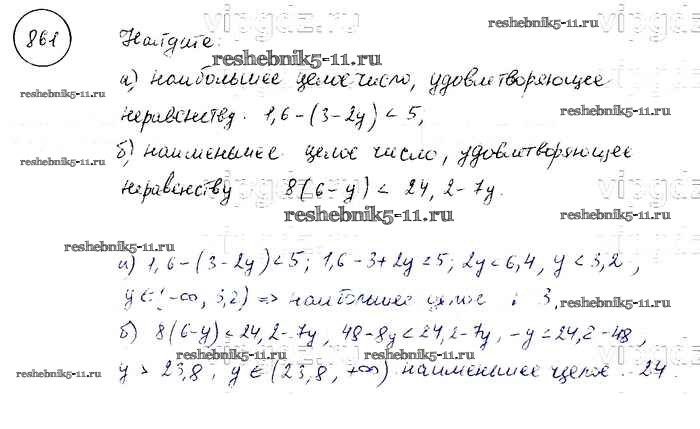 861
Найдите:
а) наибольшее целое число, удовлетворяющее
неравенству 1,6-(3-2y) < 5;
б) наименьшее целое число, удовлетворяющее
неравенству 8(6-y) < 24,2-7y.
а) 1,6-(3-2y)<5; 1,6-3+2y<5; 2y<6,4, y<3,2,
y∈(-∞, 3,2) => наибольшее целое : 3.
б) 8(6-y)<24,2-7y, 48-8y<24,2-7y, -y<24,2-48,
y > 23,8, y ∈ (23,8, +∞) наименьшее целое 24.
reshebnik5-11.ru
reshebnik5-11.ru
reshebnik5-11.ru
reshebnik5-11.ru
reshebnik5-11.ru
reshebnik5-11.ru
reshebnik5-11.ru
reshebnik5-11.ru
reshebnik5-11.ru
reshebnik5-11.ru
reshebnik5-11.ru
vipgdz.ru
vipgdz.ru
vipgdz.ru
vipgdz.ru